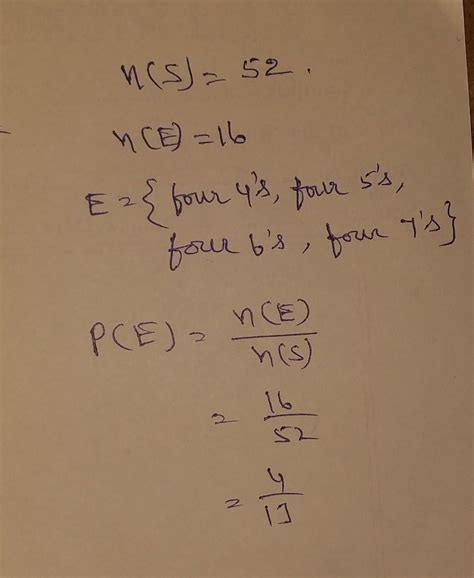 n(S) = 52.
n(E) = 16
E = { four 4's, four 5's,
four 6's, four 7's}
P(E) = n(E)/n(S)
= 16/52
= 4/13